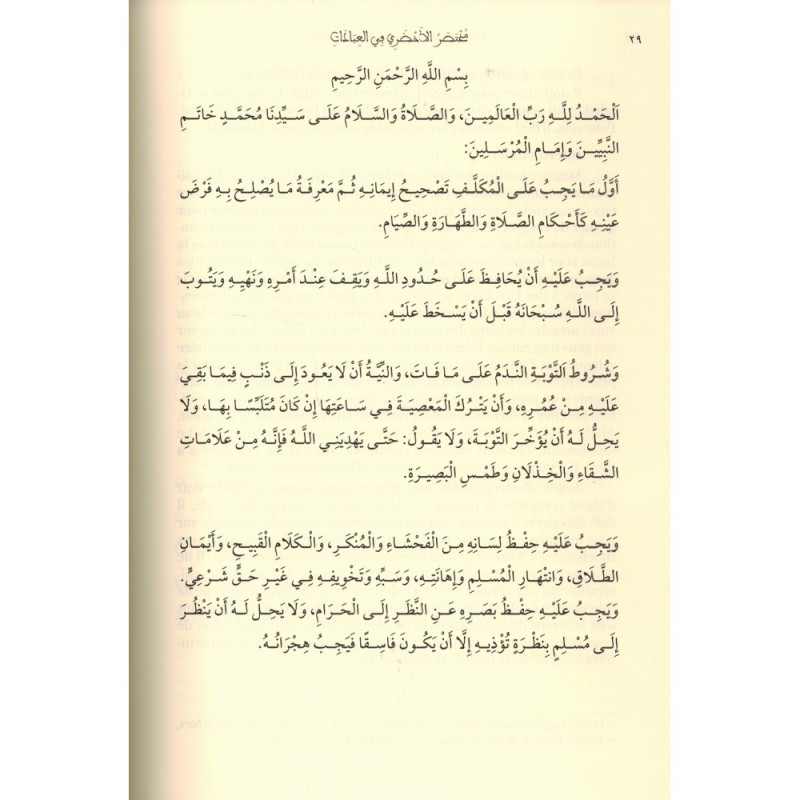 مُخْتَصَرُ الأَخْضَرِي فِي العِبَادَاتِ
٢٩
بِسْمِ اللَّهِ الرَّحْمَنِ الرَّحِيمِ
اَلْحَمْدُ لِلَّهِ رَبِّ الْعَالَمِينَ، وَالصَّلَاةُ وَالسَّلَامُ عَلَى سَيِّدِنَا مُحَمَّدٍ خَاتَمِ
النَّبِيِّينَ وَإِمَامِ الْمُرْسَلِينَ:
أَوَّلُ مَا يَجِبُ عَلَى الْمُكَلَّفِ تَصْحِيحُ إِيمَانِهِ ثُمَّ مَعْرِفَةُ مَا يُصْلِحُ بِهِ فَرْضَ
عَيْنِهِ كَأَحْكَامِ الصَّلَاةِ وَالطَّهَارَةِ وَالصِّيَامِ.
وَيَجِبُ عَلَيْهِ أَنْ يُحَافِظَ عَلَى حُدُودِ اللَّهِ وَيَقِفَ عِنْدَ أَمْرِهِ وَنَهْيِهِ وَيَتُوبَ
إِلَى اللَّهِ سُبْحَانَهُ قَبْلَ أَنْ يَسْخَطَ عَلَيْهِ.
وَشُرُوطُ اَلتَّوْبَةِ النَّدَمُ عَلَى مَا فَاتَ، وَالنِّيَّةُ أَنْ لَا يَعُودَ إِلَى ذَنْبٍ فِيمَا بَقِيَ
عَلَيْهِ مِنْ عُمُرِهِ، وَأَنْ يَتْرُكَ الْمَعْصِيَةَ فِي سَاعَتِهَا إِنْ كَانَ مُتَلَبِّسًا بِهَا، وَلَا
يَحِلُّ لَهُ أَنْ يُؤَخِّرَ التَّوْبَةَ، وَلَا يَقُولُ: حَتَّى يَهْدِيَنِي اللَّهُ فَإِنَّهُ مِنْ عَلَامَاتِ
الشَّقَاءِ وَالْخِذْلَانِ وَطَمْسِ الْبَصِيرَةِ.
وَيَجِبُ عَلَيْهِ حِفْظُ لِسَانِهِ مِنَ الْفَحْشَاءِ وَالْمُنْكَرِ، وَالْكَلَامِ الْقَبِيحِ، وَأَيْمَانِ
الطَّلَاقِ، وَانْتِهَارِ الْمُسْلِمِ وَإِهَانَتِهِ، وَسَبِّهِ وَتَخْوِيفِهِ فِي غَيْرِ حَقٍّ شَرْعِيٍّ.
وَيَجِبُ عَلَيْهِ حِفْظُ بَصَرِهِ عَنِ النَّظَرِ إِلَى الْحَرَامِ، وَلَا يَحِلُّ لَهُ أَنْ يَنْظُرَ
إِلَى مُسْلِمٍ بِنَظْرَةٍ تُؤْذِيهِ إِلَّا أَنْ يَكُونَ فَاسِقًا فَيَجِبُ هِجْرَانُهُ.